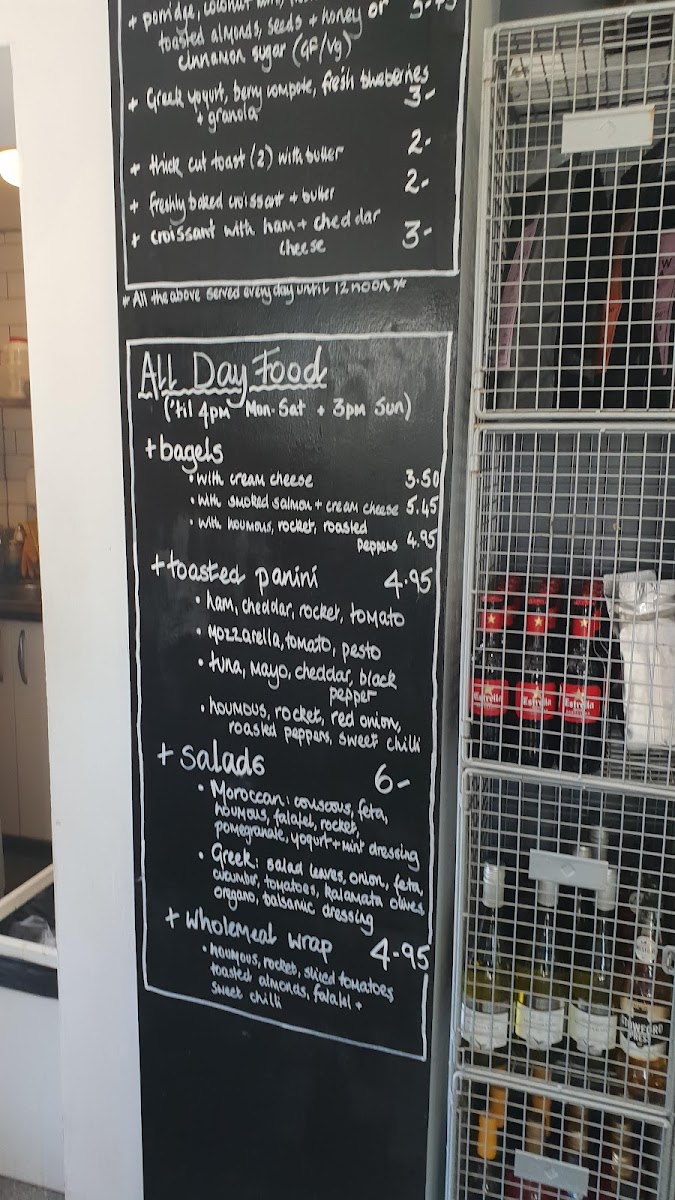 + porridge, coconut milk,
toasted almonds, seeds + honey or
cinnamon sugar (GF/Vg)
+ Greek yogurt, berry compote, fresh blueberries
+ granola 3-
+ thick cut toast (2) with butter 2-
+ freshly baked croissant + butter 2-
+ croissant with ham + cheddar
cheese 3-
* All the above served every day until 12 noon *
All Day Food
('til 4pm Mon-Sat + 3pm Sun)
+ bagels
• with cream cheese 3.50
• with smoked salmon + cream cheese 5.45
• with houmous, rocket, roasted
peppers 4.95
+ toasted panini 4.95
• ham, cheddar, rocket, tomato
• Mozzarella, tomato, pesto
• tuna, mayo, cheddar, black
pepper
• houmous, rocket, red onion,
roasted peppers, sweet chilli
+ salads 6-
• Moroccan: couscous, feta,
houmous, falafel, rocket,
pomegranate, yogurt + mint dressing
• Greek: salad leaves, onion, feta,
cucumber, tomatoes, kalamata olives
oregano, balsamic dressing
+ wholemeal wrap 4-95
• houmous, rocket, sliced tomatoes
toasted almonds, falafel +
sweet chilli
Estrella
Estrella
Estrella
STOWFORD
PRESS